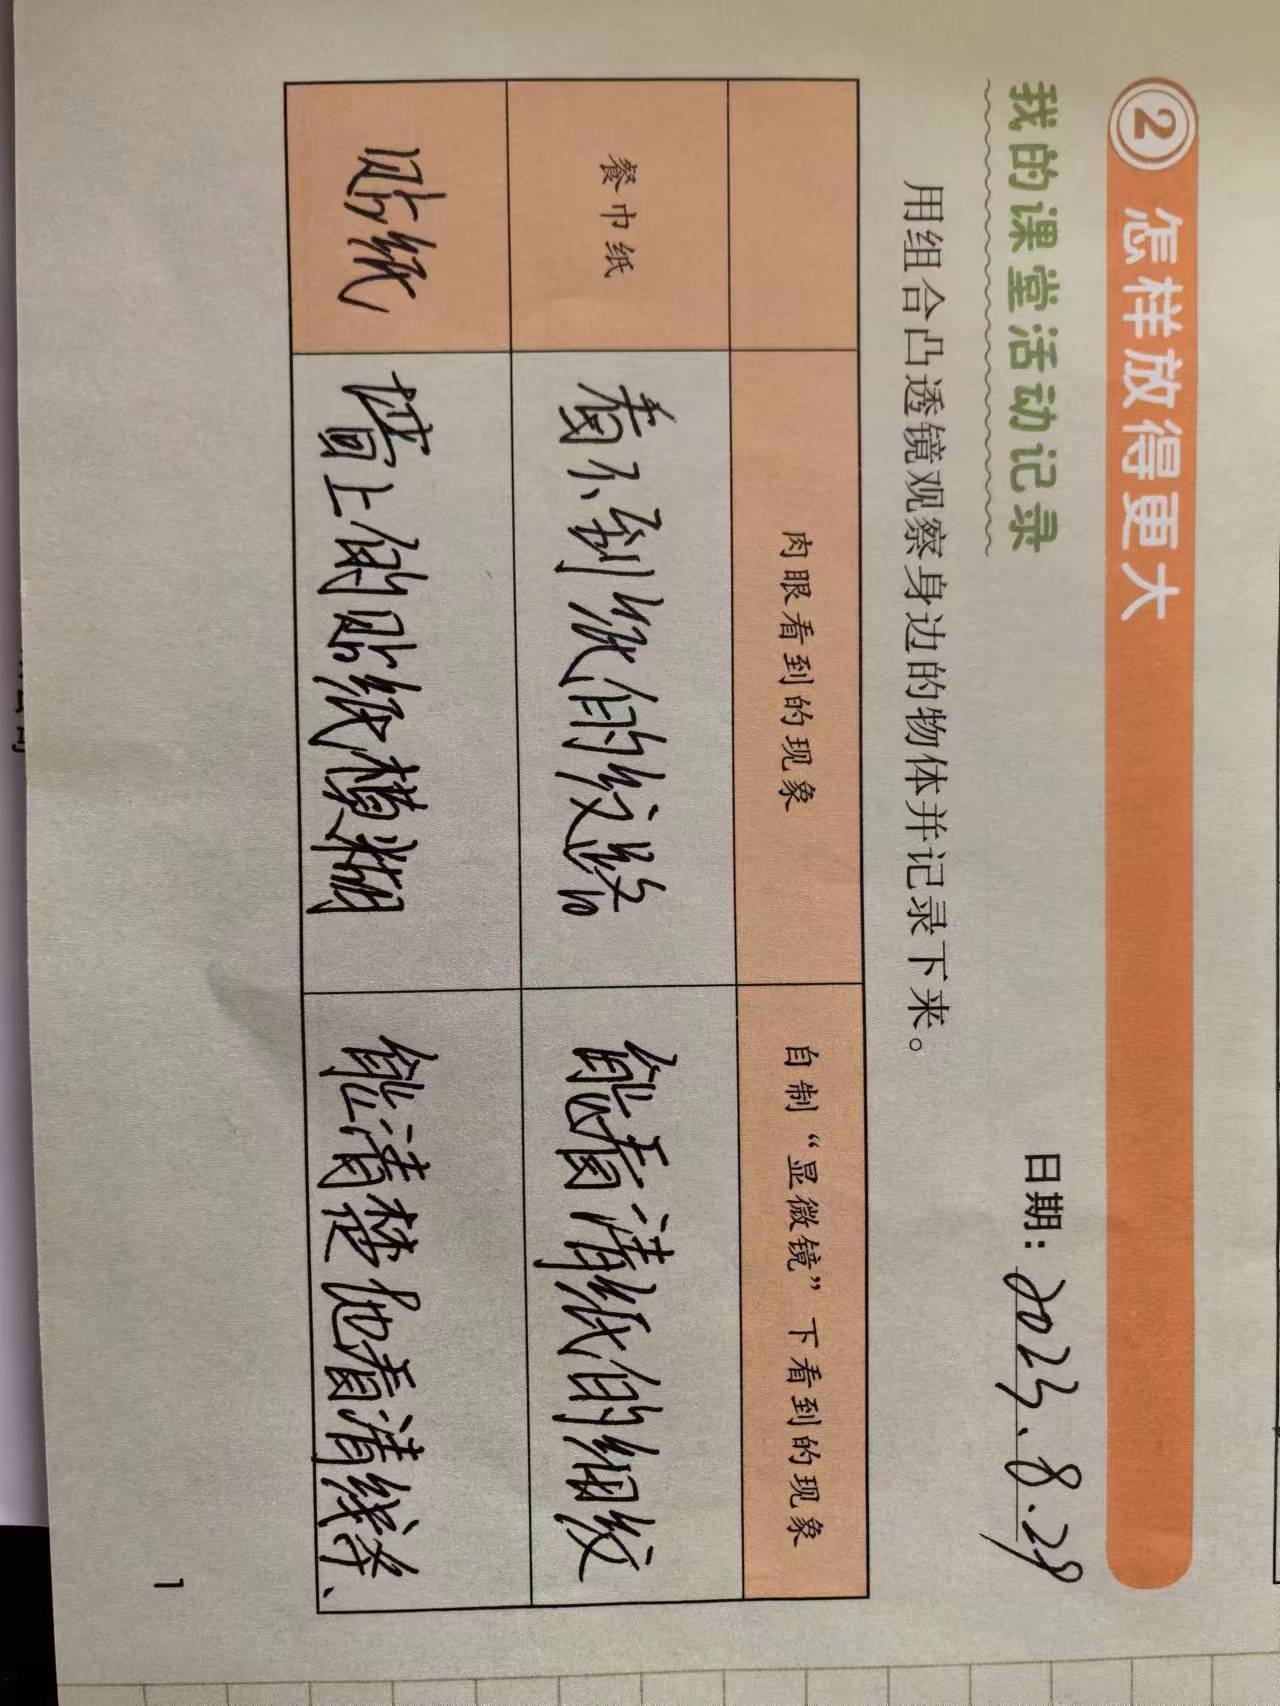 2 怎样放得更大
我的课堂活动记录
日期：2023.8.29
用组合凸透镜观察身边的物体并记录下来。
肉眼看到的现象 自制“显微镜”下看到的现象
餐巾纸 看不到纸的纹路 能看清纸的细纹
贴纸 墙上的贴纸模糊 能清楚地看清线条、
1